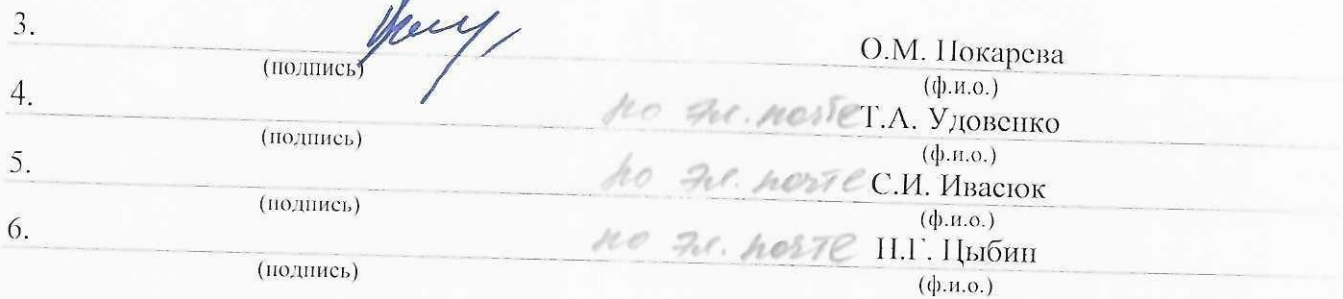 3.
О.М. Покарева
(подпись)
(ф.и.о.)
4.
по эл. почте Т.А. Удовенко
(подпись)
(ф.и.о.)
5.
по эл. почте С.И. Ивасюк
(подпись)
(ф.и.о.)
6.
по эл. почте Н.Г. Цыбин
(подпись)
(ф.и.о.)